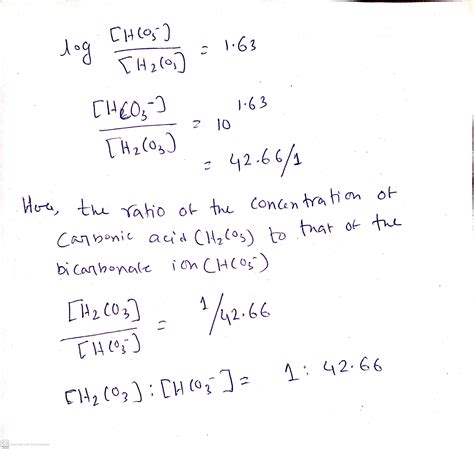 log [HCO3-] / [H2CO3] = 1.63
[HCO3-] / [H2CO3] = 10^1.63
= 42.66/1
Here, the ratio of the concentration of
carbonic acid (H2CO3) to that of the
bicarbonate ion (HCO3-)
[H2CO3] / [HCO3-] = 1/42.66
[H2CO3] : [HCO3-] = 1 : 42.66